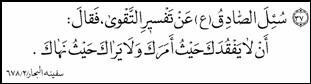 (٣٧) سُئِلَ الصّادِقُ (ع) عَنْ تَفْسيرِ التَّقْوىٰ، فَقالَ:
أَنْ لا يَفْقُدَكَ حَيْثُ أَمَرَكَ وَلا يَراكَ حَيْثُ نَهاكَ.
سفينه البحار/٢/٦٧٨